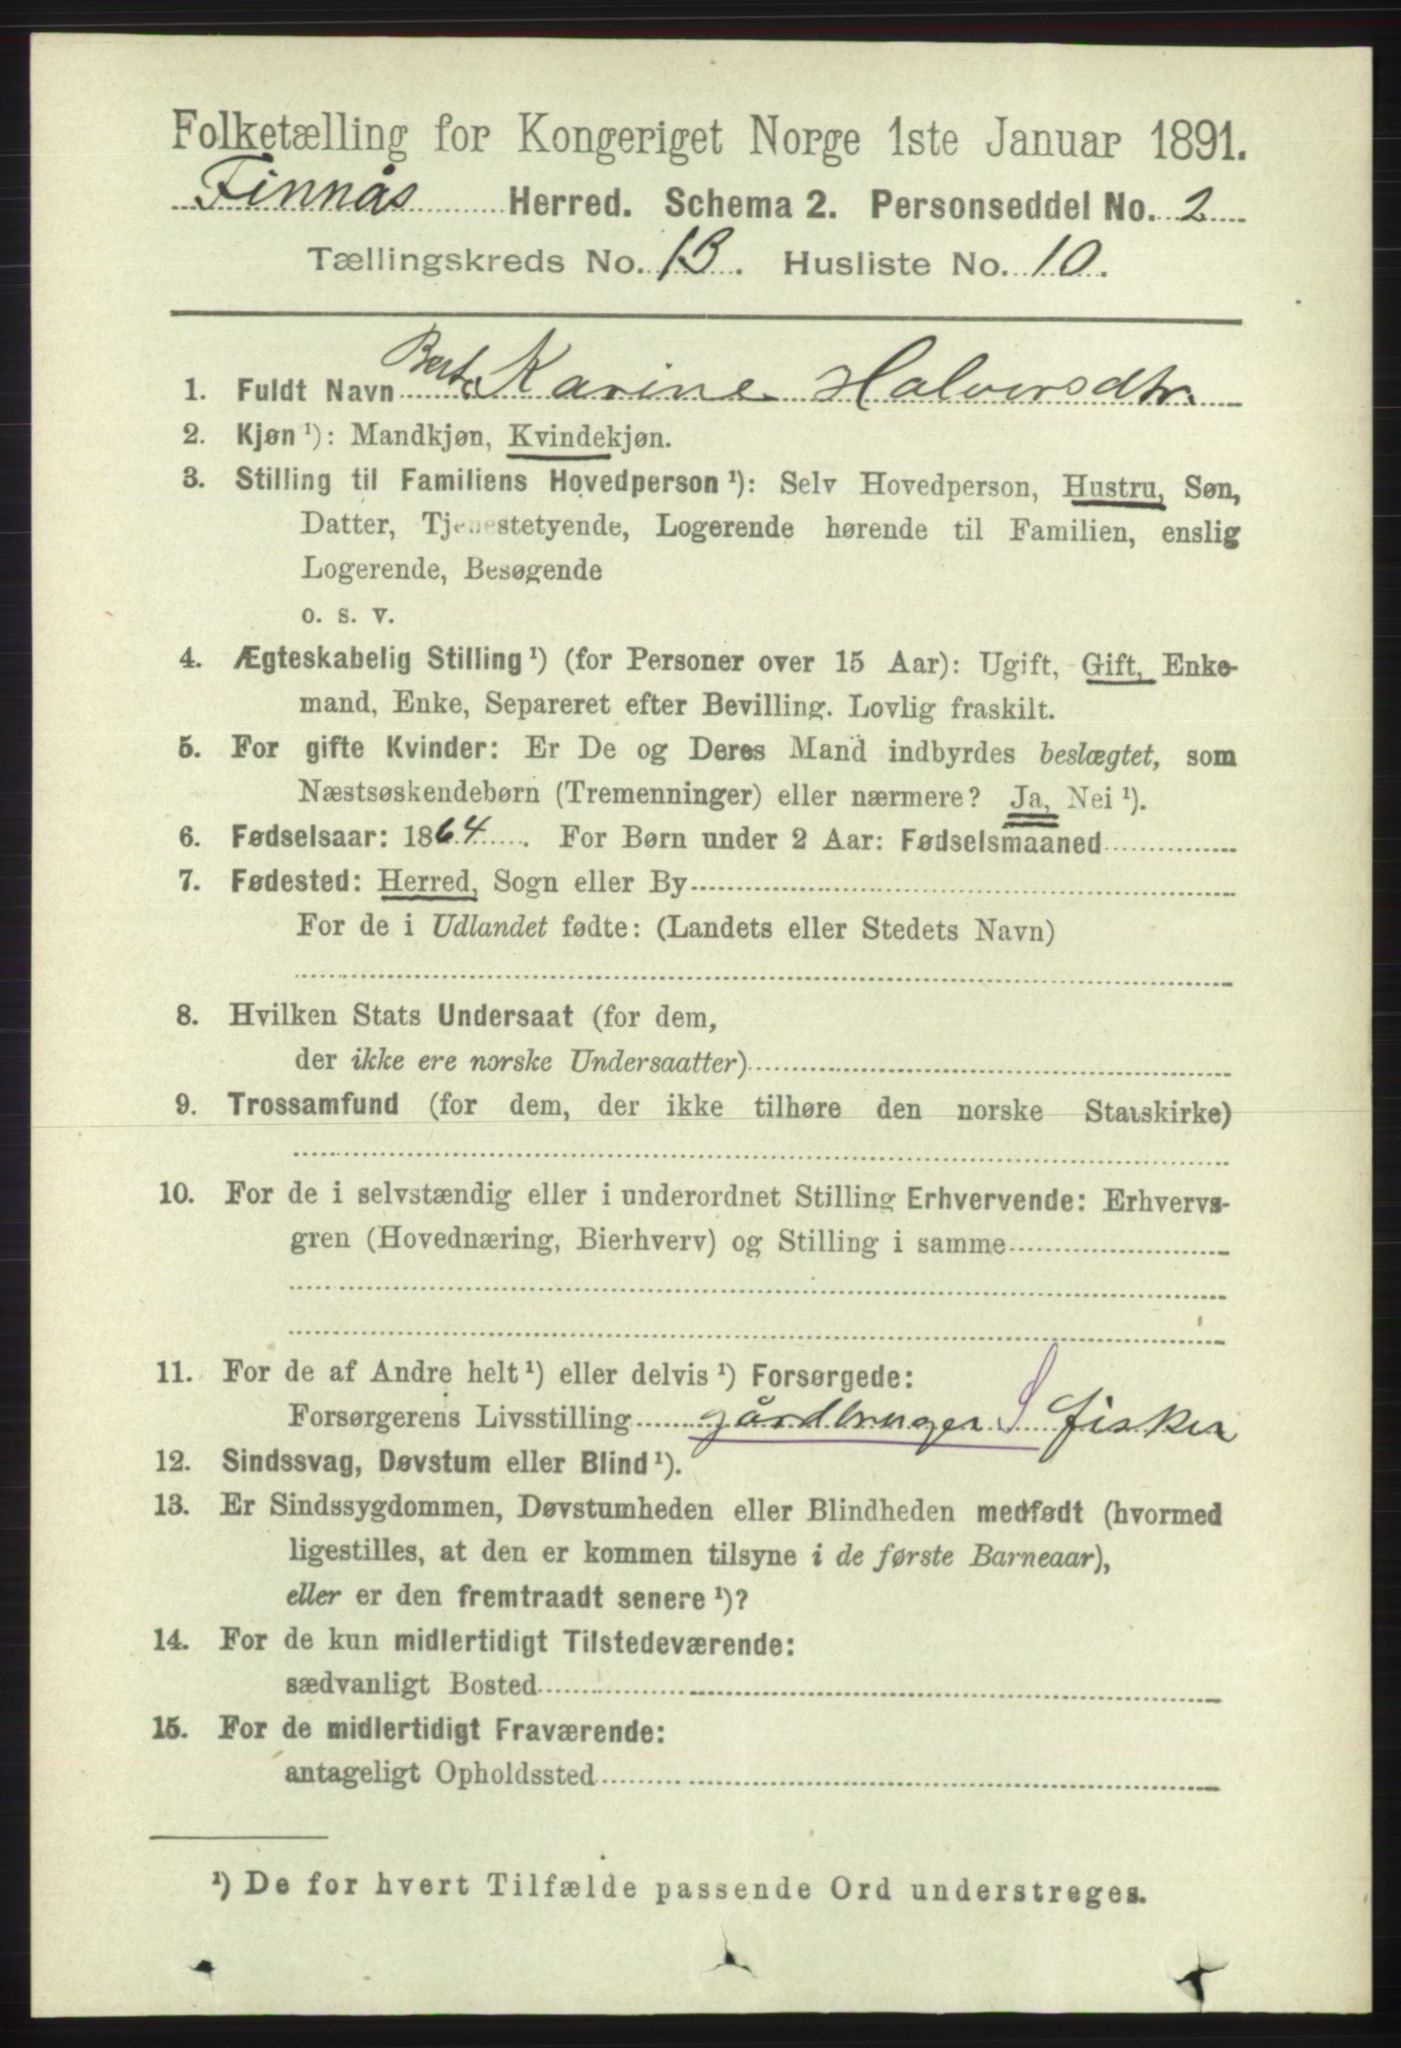 Folketælling for Kongeriget Norge 1ste Januar 1891.
Finnås Herred. Schema 2. Personseddel No. 2
Tællingskreds No. 13. Husliste No. 10.
1. Fuldt Navn Berta Karine Halvorsdtr.
2. Kjøn ¹): Mandkjøn, Kvindekjøn.
3. Stilling til Familiens Hovedperson ¹): Selv Hovedperson, Hustru, Søn,
Datter, Tjenestetyende, Logerende hørende til Familien, enslig
Logerende, Besøgende
o. s. v.
4. Ægteskabelig Stilling ¹) (for Personer over 15 Aar): Ugift, Gift, Enke-
mand, Enke, Separeret efter Bevilling. Lovlig fraskilt.
5. For gifte Kvinder: Er De og Deres Mand indbyrdes beslægtet, som
Næstsøskendebørn (Tremenninger) eller nærmere? Ja, Nei ¹).
6. Fødselsaar: 1864. For Børn under 2 Aar: Fødselsmaaned
7. Fødested: Herred, Sogn eller By
For de i Udlandet fødte: (Landets eller Stedets Navn)
8. Hvilken Stats Undersaat (for dem,
der ikke ere norske Undersaatter)
9. Trossamfund (for dem, der ikke tilhøre den norske Statskirke)
10. For de i selvstændig eller i underordnet Stilling Erhvervende: Erhvervs-
gren (Hovednæring, Bierhverv) og Stilling i samme
11. For de af Andre helt ¹) eller delvis ¹) Forsørgede:
Forsørgerens Livsstilling gårdbruger S fisker
12. Sindssvag, Døvstum eller Blind ¹).
13. Er Sindssygdommen, Døvstumheden eller Blindheden medfødt (hvormed
ligestilles, at den er kommen tilsyne i de første Barneaar),
eller er den fremtraadt senere ¹)?
14. For de kun midlertidigt Tilstedeværende:
sædvanligt Bosted
15. For de midlertidigt Fraværende:
antageligt Opholdssted
¹) De for hvert Tilfælde passende Ord understreges.